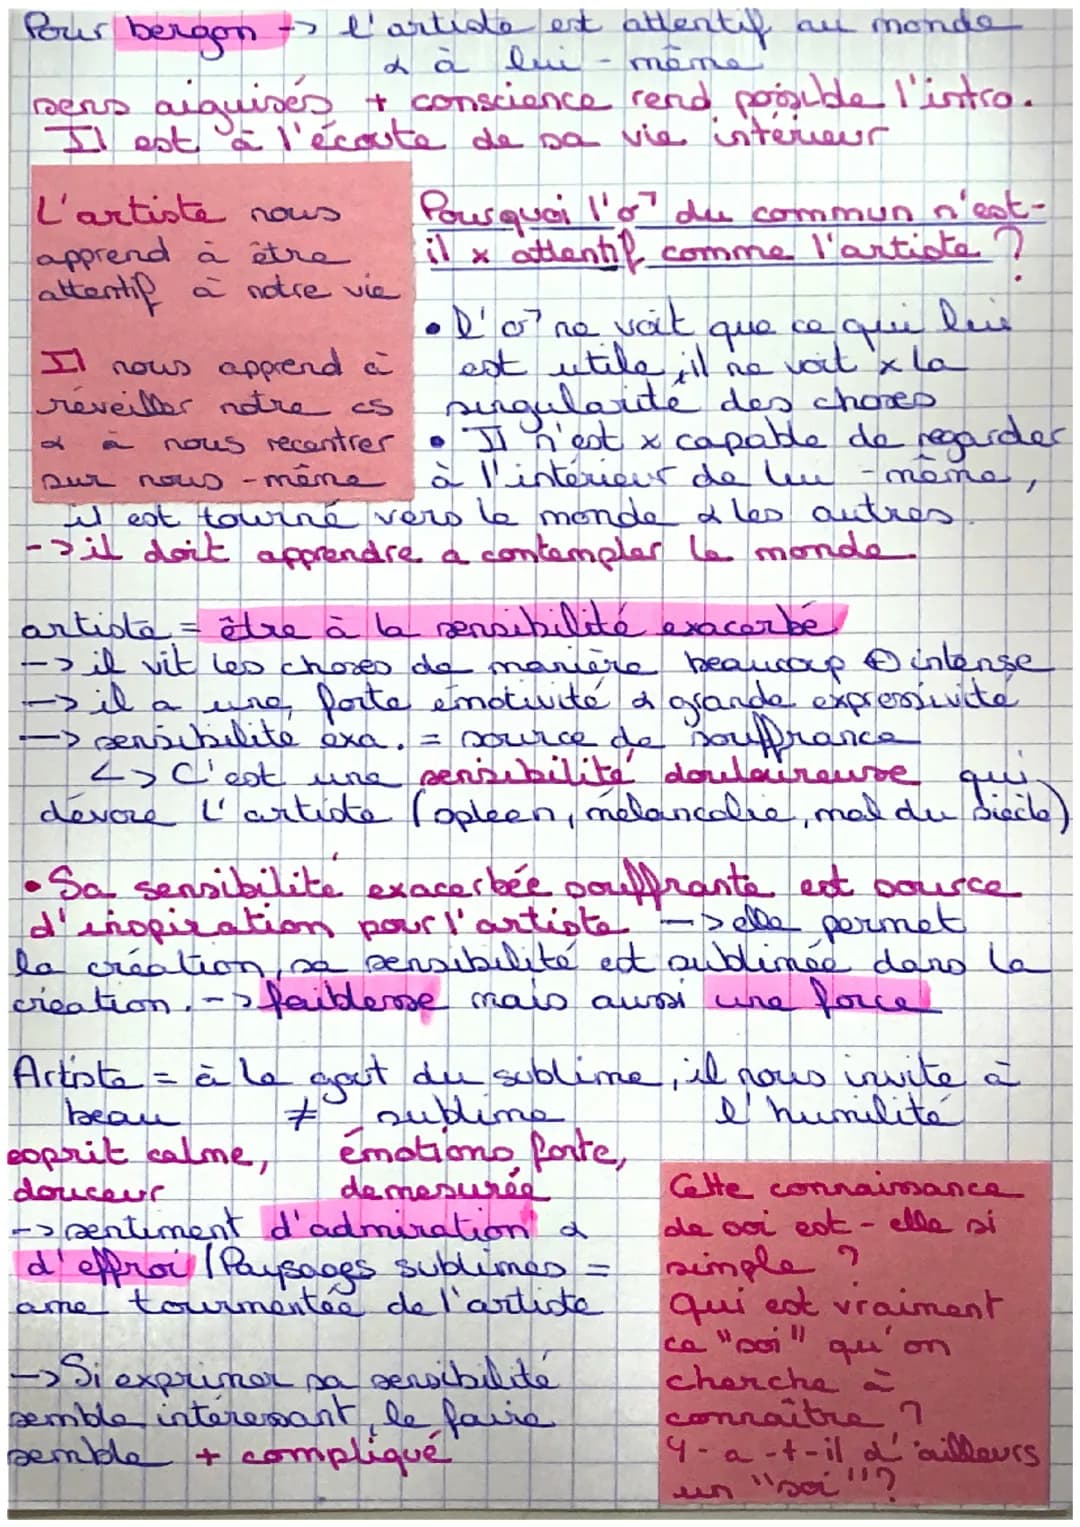 Pour bergson -> l'artiste est attentif au monde
& à lui-même
sens aiguisés + conscience rend possible l'intro.
Il est à l'écoute de sa vie intérieur
L'artiste nous
apprend à être
attentif à notre vie
Il nous apprend à
réveiller notre cs
& à nous recentrer
sur nous-même
Pourquoi l'♂ du commun n'est-
il x attentif comme l'artiste ?
• l'♂ ne voit que ce qui lui
est utile, il ne voit x la
singularité des choses
• Il n'est x capable de regarder
à l'intérieur de lui-même,
il est tourné vers le monde & les autres
-> il doit apprendre a contempler le monde.
artiste = être à la sensibilité exacerbé
-> il vit les choses de manière beaucoup ⊕ intense
-> il a une forte émotivité & grande expressivité
-> sensibilité exa. = source de souffrance
<-> C'est une sensibilité douloureuse qui
dévore l'artiste (spleen, mélancolie, mal du siècle)
• Sa sensibilité exacerbée souffrante est source
d'inspiration pour l'artiste -> elle permet
la création, sa sensibilité est sublimée dans la
création. -> faiblesse mais aussi une force
Artiste = à le gout du sublime, il nous invite à
l'humilité
beau ≠ sublime
esprit calme, émotions forte,
douceur demesurée
-> sentiment d'admiration &
d'effroi / Paysages sublimes =
ame tourmentée de l'artiste
-> Si exprimer sa sensibilité
semble intéressant, le faire
semble + compliqué
Cette connaissance
de soi est-elle si
simple ?
Qui est vraiment
ce "soi" qu'on
cherche à
connaître ?
Y-a-t-il d'ailleurs
un "soi" ?